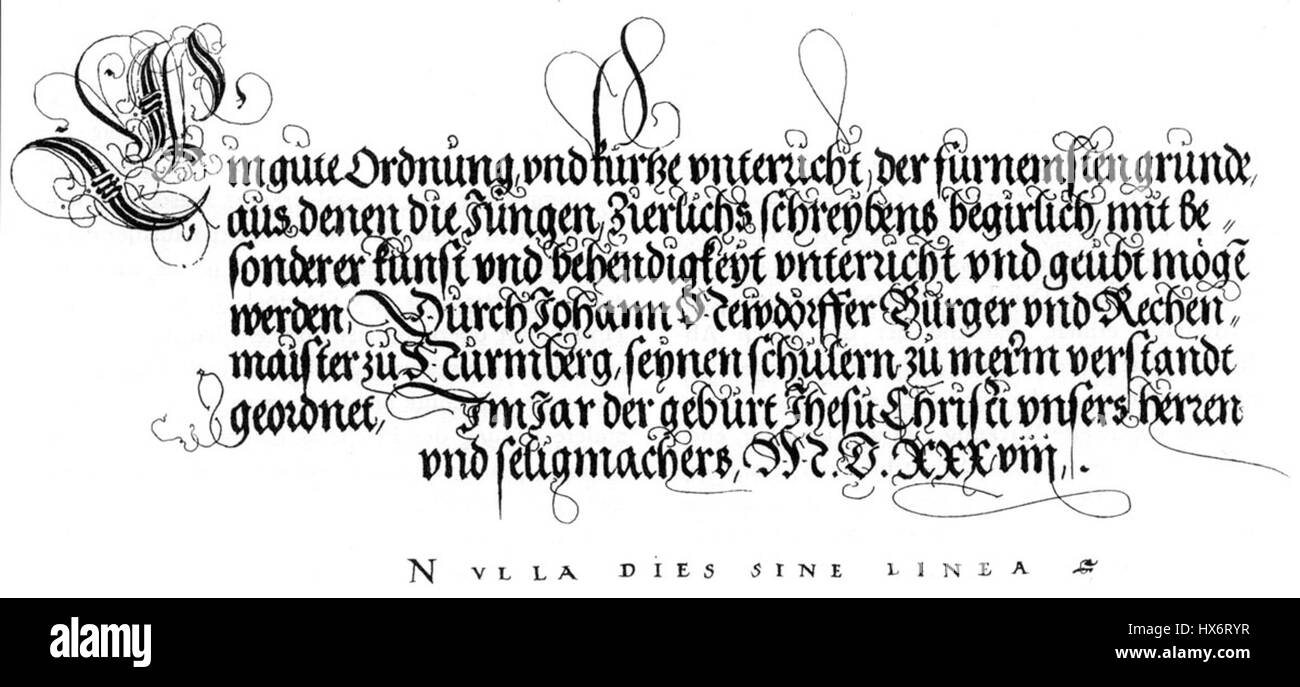 Ein gute Ordnung, vnd kurtze vnterricht, der furnemsten grunde,
aus denen die Jungen, Zierlichs schreybens begirlich, mit be=
sonderer kunst vnd behendigkeyt vnterricht vnd geubt mogē
werden, Durch Johann Newdorffer Burger vnd Rechen=
maister zu Nurmberg, seynen schulern zu merm verstandt
geordnet, Im Jar der geburt Jhesu Christi vnsers herren
vnd seligmachers, M. D. XXXviij, .
NVLLA DIES SINE LINEA
alamy stock photo
HX6RYR
www.alamy.com